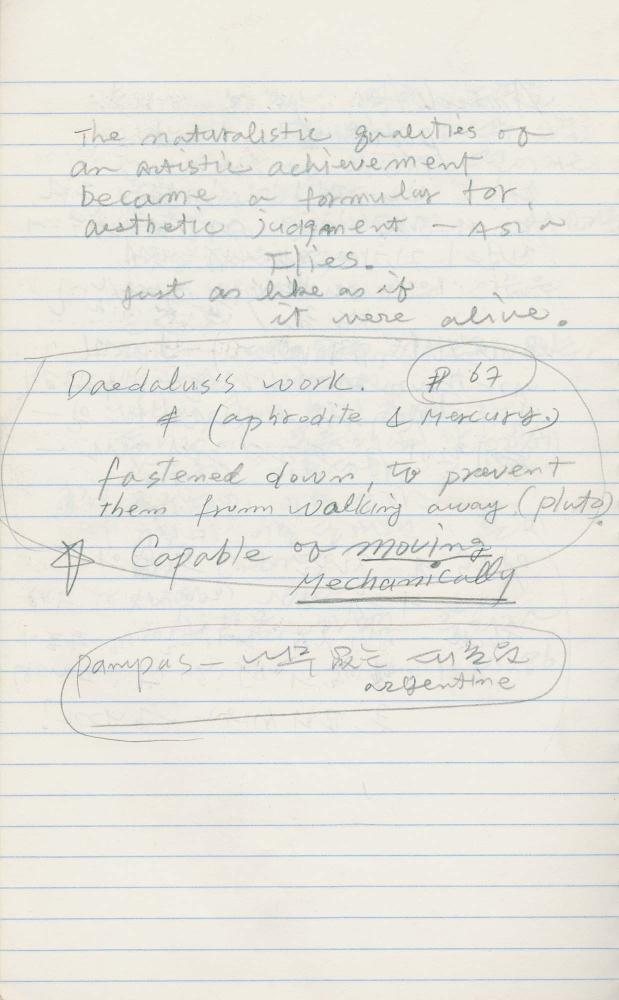 The naturalistic qualities of
an artistic achievement
became a formular for,
aesthetic judgment – Asia
Flies.
just as like as if
it were alive.
Daedalus's work. # 67
& (aphrodite & Mercury.)
fastened down, to prevent
them from walking away (pluto).
☆ Capable of moving
Mechanically
pampas – 나무 없는 대초원
argentine